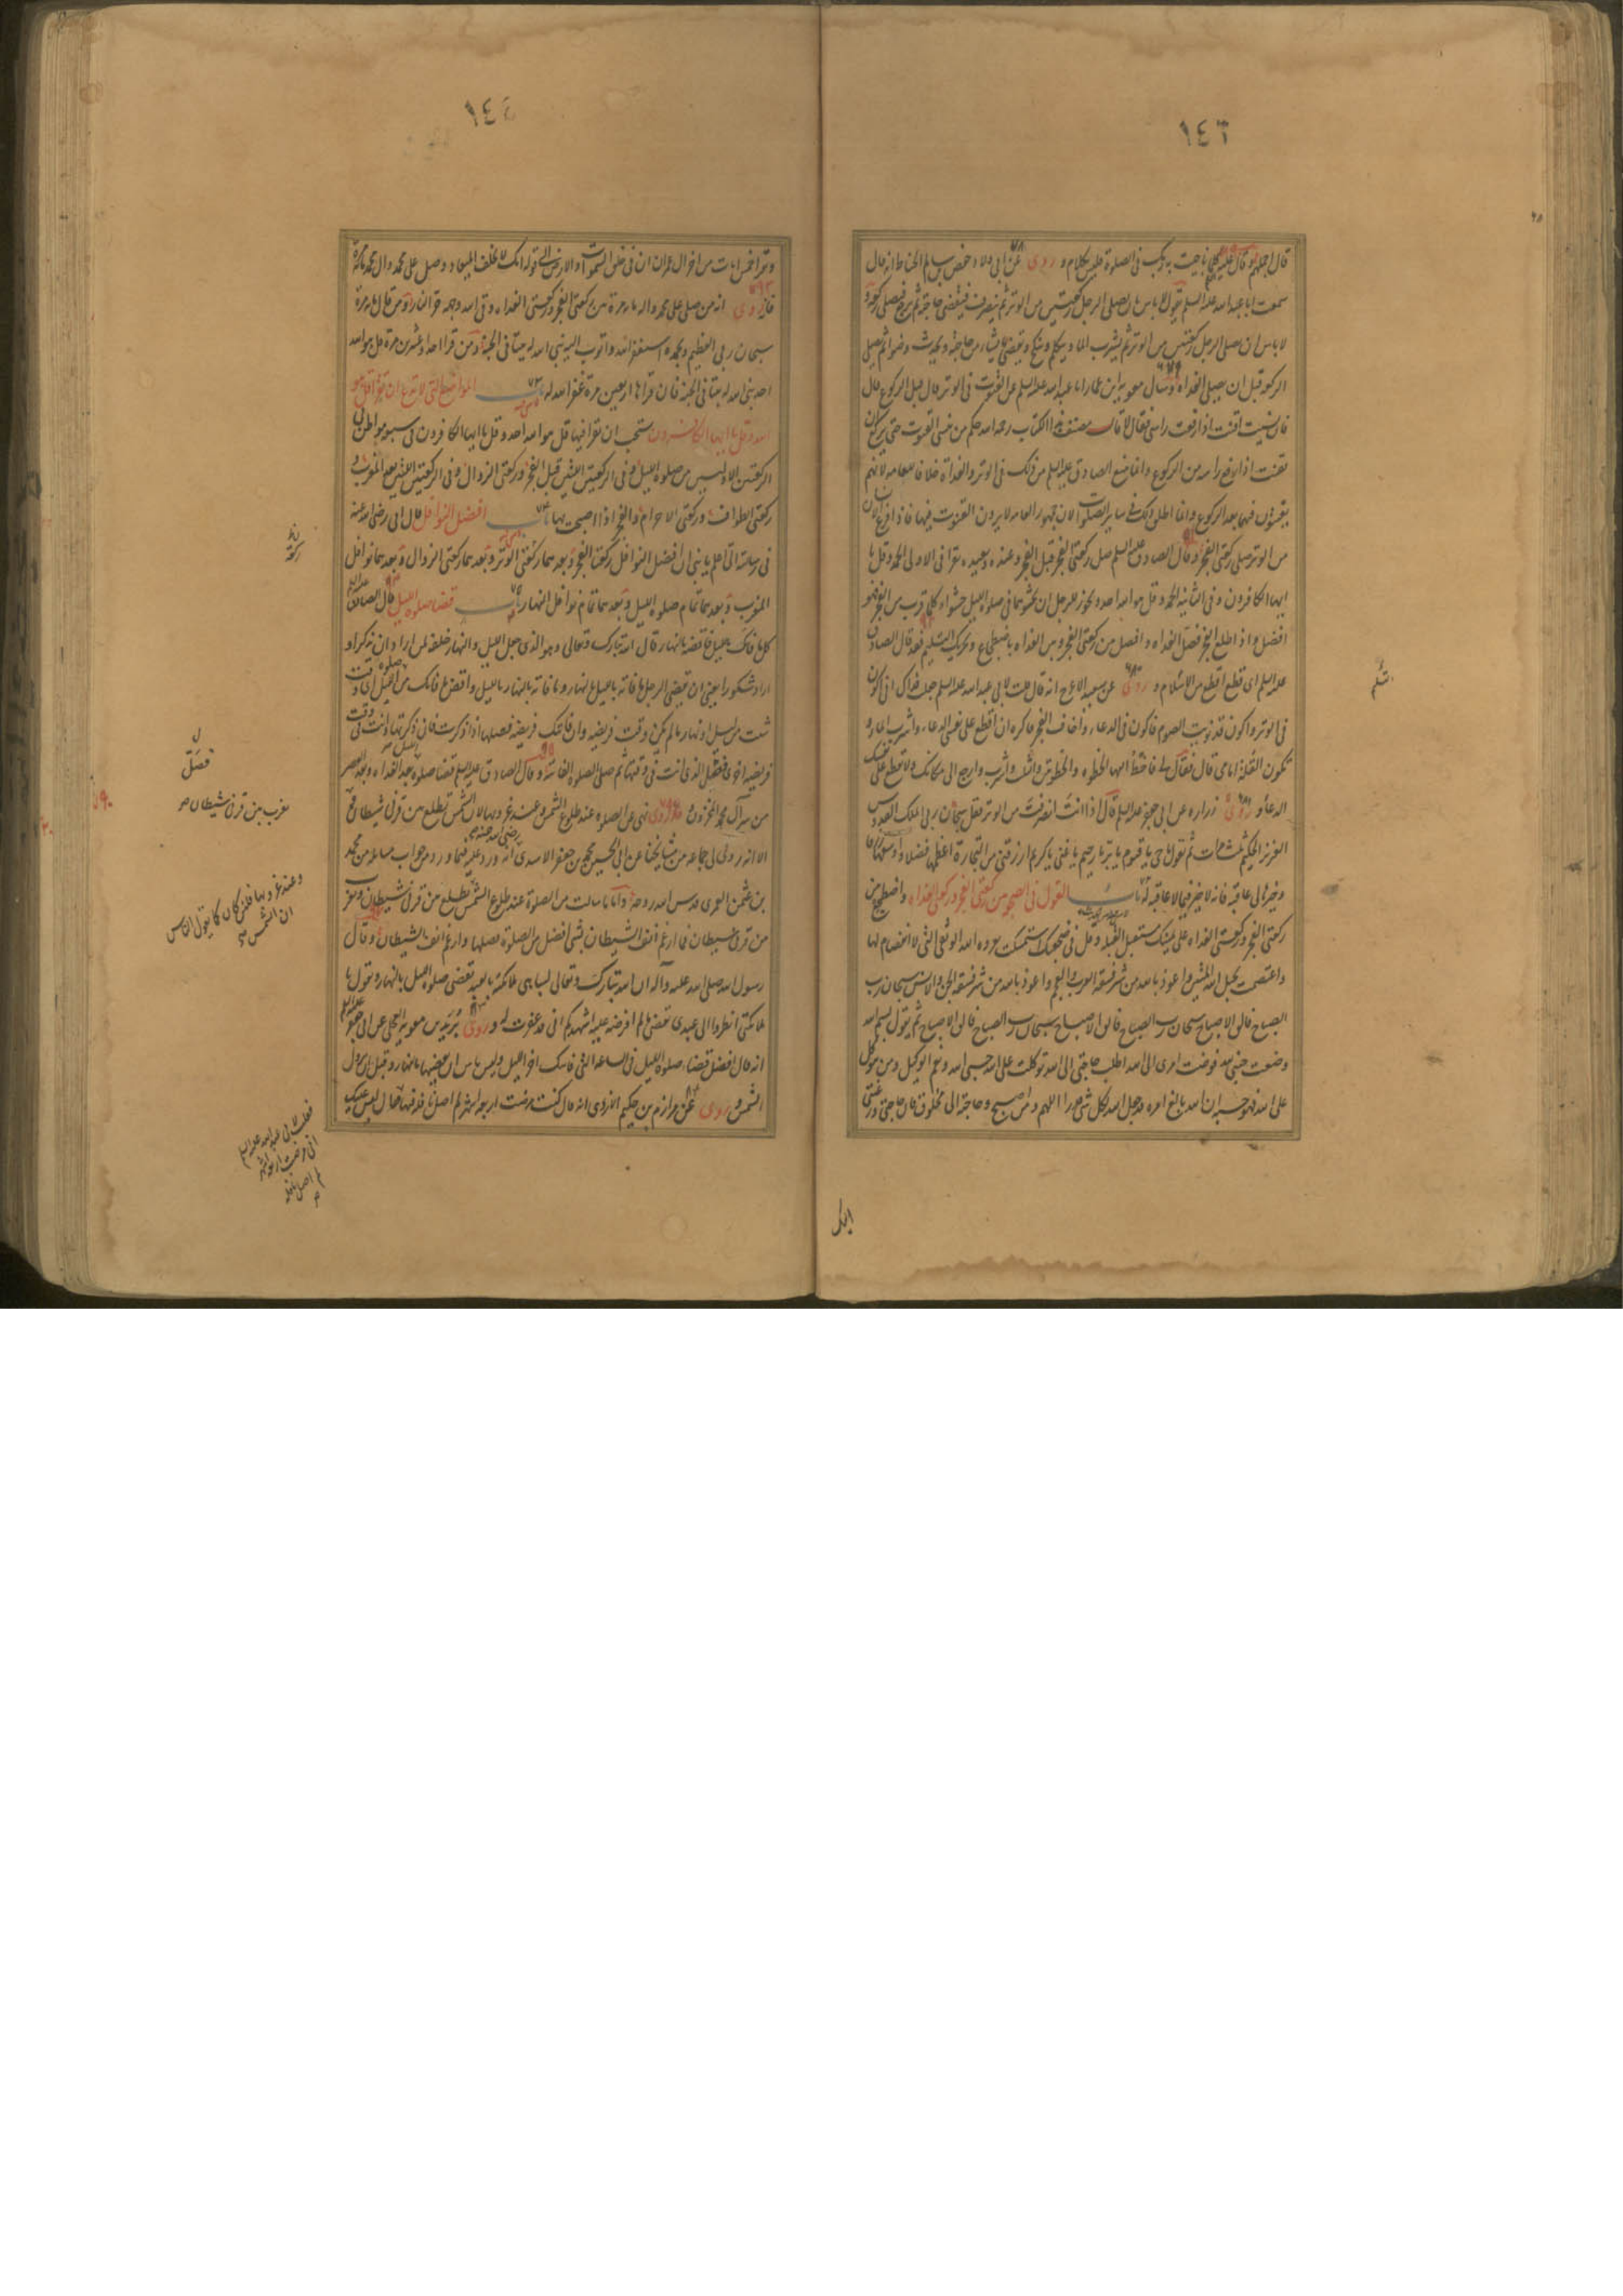 ١٤٦
قال اجلهم وقال عليه كلما ناجيت به ربك فى الصلوة فليس بكلام و روى عن ابى ولاد حفص بن سالم الحناط انه قال
سمعت ابا عبد الله عليه السلم يقول لا باس ان يصلى الرجل ركعتين من الوتر ثم ينصرف فيقضى حاجته ثم يرجع فيصلى ركعة و
لا باس ان يصلى الرجل ركعتين من الوتر ثم يشرب الماء ويتكلم وينكح ويقضى ما شاء من حاجته ويحدث وضوءا ثم يصلى
الركعة قبل ان يصلى الغداة وسال معوية ابن عمار ابا عبد الله عليه السلم عن القنوت فى الوتر قال قبل الركوع قال
فان نسيت اقنت اذا رفعت راسى فقال لا قال مصنف هذا الكتاب رحمه الله حكم من نسى القنوت حتى يركع ان
يقنت اذا رفع راسه من الركوع وانما منع الصادق عليه السلم من ذلك فى الوتر والغداة خلافا للعامه لانهم
يقنتون فيهما بعد الركوع وانما اطلق ذلك فى ساير الصلوات لان جمهور العامه لا يرون القنوت فيها فاذا فرغ الانسان
من الوتر صلى ركعتى الفجر وقال الصادق عليه السلم صل ركعتى الفجر قبل الفجر وعنده وبعيده تقرا فى الاولى الحمد وقل يا
ايها الكافرون وفى الثانيه الحمد وقل هو الله احد ويجوز للرجل ان يحشوهما فى صلوة الليل حشوا وكلما قرب من الفجر فهو
افضل فاذا طلع الفجر فصل الغداة وافصل بين ركعتى الفجر وبين الغداه باضطجاع ويجزيك التسليم فقد قال الصادق
عليه السلم اى قطع اقطع من السلام و روى عن سعيد الاعرج انه قال قلت لابى عبد الله عليه السلم جعلت فداك انى اكون
فى الوتر واكون قد نويت الصوم فاكون فى الدعاء واخاف الفجر فاكره ان اقطع على نفسى الدعاء واشرب الماء و
تكون القلة امامى قال فقال لى فاخط اليها الخطوه والخطوتين والثلث واشرب وارجع الى مكانك ولا تقطع على نفسك
الدعاء و روى زراره عن ابى جعفر عليه السلم قال اذا انت انصرفت من الوتر فقل سبحان ربى الملك القدوس
العزيز الحكيم ثلث مرات ثم تقول يا حى يا قيوم يا بر يا رحيم يا غنى يا كريم ارزقنى من التجارة اعظمها فضلا واوسعها رزقا
وخيرها لى عاقبة فانه لا خير فيما لا عاقبة له باب القول فى الضجعة بين ركعتى الفجر وركعتى الغداه واضطجع بين
ركعتى الفجر وركعتى الغداه على يمينك مستقبل القبله وقل فى ضجعتك استمسكت بعروه الله الوثقى التى لا انفصام لها
واعتصمت بحبل الله المتين واعوذ بالله من شر فسقة العرب والعجم واعوذ بالله من شر فسقة الجن والانس سبحان رب
الصباح فالق الاصباح سبحان رب الصباح فالق الاصباح سبحان رب الصباح فالق الاصباح ثم يقول بسم الله
وضعت جنبى لله فوضت امرى الى الله اطلب حاجتى الى الله توكلت على الله حسبى الله ونعم الوكيل ومن يتوكل
على الله فهو حسبه ان الله بالغ امره قد جعل الله لكل شى قدرا اللهم ومن اصبح وحاجته الى مخلوق فان حاجتى ورغبتى
اليك
وتقرا خمس ايات من اخر ال عمران ان فى خلق السموات والارض الى قوله انك لا تخلف الميعاد وصل على محمد وال محمد مائة مرة
فانه روى انه من صلى على محمد واله مائة مرة بين ركعتى الفجر وركعتى الغداة وقى الله وجهه حر النار ومن قال مائة مرة
سبحان ربى العظيم وبحمده استغفر الله واتوب اليه بنى الله له بيتا فى الجنة ومن قرا احدا وعشرين مرة قل هو الله
احد بنى الله له بيتا فى الجنة فان قراها اربعين مرة غفر الله له باب المواضع التى لا تدع ان تقرا قل هو
الله وقل يا ايها الكافرون يستحب ان تقرا فيها قل هو الله احد وقل يا ايها الكافرون فى سبعة مواطن فى
الركعتين الاوليين من صلوة الليل وفى الركعتين اللتين قبل الفجر وركعتى الزوال وفى الركعتين اللتين بعد المغرب و
ركعتى الطواف وركعتى الاحرام والفجر اذا اصبحت بها باب افضل النوافل قال ابى رضى الله عنه
فى رسالته الى اعلم يا بنى ان افضل النوافل ركعتا الفجر وبعدهما ركعتى الوتر وبعدهما ركعتى الزوال وبعدهما نوافل
المغرب وبعدهما تمام صلوة الليل وبعدهما تمام نوافل النهار باب قضاء صلوة الليل قال الصادق عليه السلم
كل ما فاتك بالليل فاقضه بالنهار قال الله تبارك وتعالى وهو الذى جعل الليل والنهار خلفة لمن اراد ان يذكر او
اراد شكورا يعنى ان يقضى الرجل ما فاته بالليل بالنهار وما فاته بالنهار بالليل واقض ما فاتك من صلوة الليل اى وقت
شئت من ليل او نهار ما لم يكن وقت فريضه وان فاتتك فريضه فصلها اذا ذكرت فان ذكرتها وانت فى وقت
فريضه اخرى فصل الذى انت فى وقتها ثم صل الصلوة الفائتة وقال الصادق عليه السلم قضاء صلوة الليل بعد الغداه وبعد العصر
من سر آل محمد المخزون وقد روى نهى عن الصلوة عند طلوع الشمس وعند غروبها لان الشمس تطلع بين قرنى شيطان
الا انه روى لى جماعة من مشايخنا عن ابى الحسين محمد بن جعفر الاسدى رضى الله عنه انه ورد عليه فيما ورد من جواب مسائله من محمد
بن عثمن العمرى قدس الله روحه واما ما سالت من الصلوة عند طلوع الشمس تطلع بين قرنى شيطان وتغرب
بين قرنى شيطان فما ارغم انف الشيطان بشى افضل من الصلوة فصلها وارغم انف الشيطان وقال
رسول الله صلى الله عليه وآله ان الله تبارك وتعالى ليباهى ملائكته بالعبد يقضى صلوة الليل بالنهار ويقول يا
ملائكتى انظروا الى عبدى يقضى ما لم افترضه عليه اشهدكم انى قد غفرت له و روى بريد بن معوية العجلى عن ابى جعفر عليه السلم
انه قال افضل قضاء صلوة الليل فى الساعة التى فاتتك اخر الليل وليس باس ان تقضيها بالنهار وقبل ان تزول
الشمس و روى عن مرازم بن حكيم الازدى انه قال كنت مرضت اربعة اشهر لم اصل نافلة فيها فقال ليس عليك
فصل
تغرب بين قرنى شيطان
وعند غروبها فلئن كان كما يقول الناس
ان الشمس
فقلت لابى عبد الله عليه السلم
انى مرضت اربعة اشهر
لم اصل نافلة